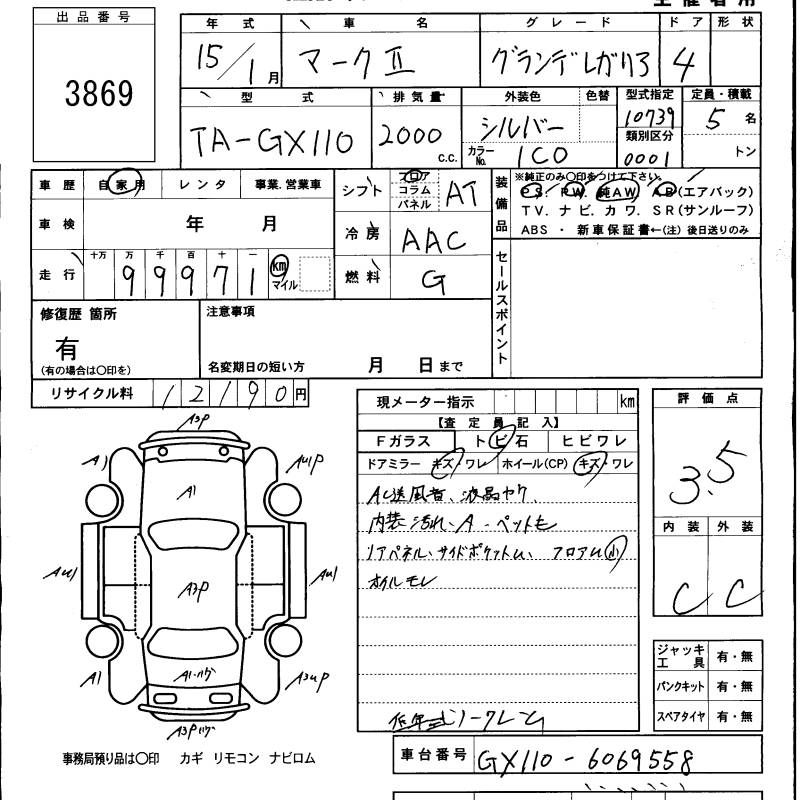 出品番号
3869
年式 車名 グレード ドア 形状
15/1月 マークⅡ グランデレガリア 4
型式 排気量 外装色 色替 型式指定 定員・積載
TA-GX110 2000 c.c. シルバー 10739 5名
カラーNo. 1C0 類別区分 0001 トン
車歴 自家用 レンタ 事業.営業車
シフト フロア コラム パネル AT
車検 年 月
冷房 AAC
走行 十万 万 千 百 十 一
99971 km マイル
燃料 G
装備品
※純正のみ〇印をつけて下さい。
PS. PW. 純AW. AB(エアバック)
TV. ナビ. カワ. SR(サンルーフ)
ABS ・ 新車保証書←(注) 後日送りのみ
セールスポイント
修復歴 箇所
有
(有の場合は〇印を)
注意事項
名変期日の短い方 月 日まで
リサイクル料 12190円
現メーター指示 km
【査定員記入】
Fガラス トビ石 ヒビワレ
ドアミラー キズ・ワレ ホイール(CP) キズ・ワレ
AC送風音、液晶ヤケ、
内装汚れ、A・ペットモ
リアパネル、サイドポケットU、フロアU小
オイルモレ
低年式ノークレーム
評価点
3.5
内装 外装
C C
ジャッキ工具 有・無
パンクキット 有・無
スペアタイヤ 有・無
A3P
A1
AU1P
A1
AU1
A3P
AU1
A1
A1・ハゲ
A3UP
A3Pハゲ
事務局預り品は〇印 カギ リモコン ナビロム
車台番号 GX110-6069558